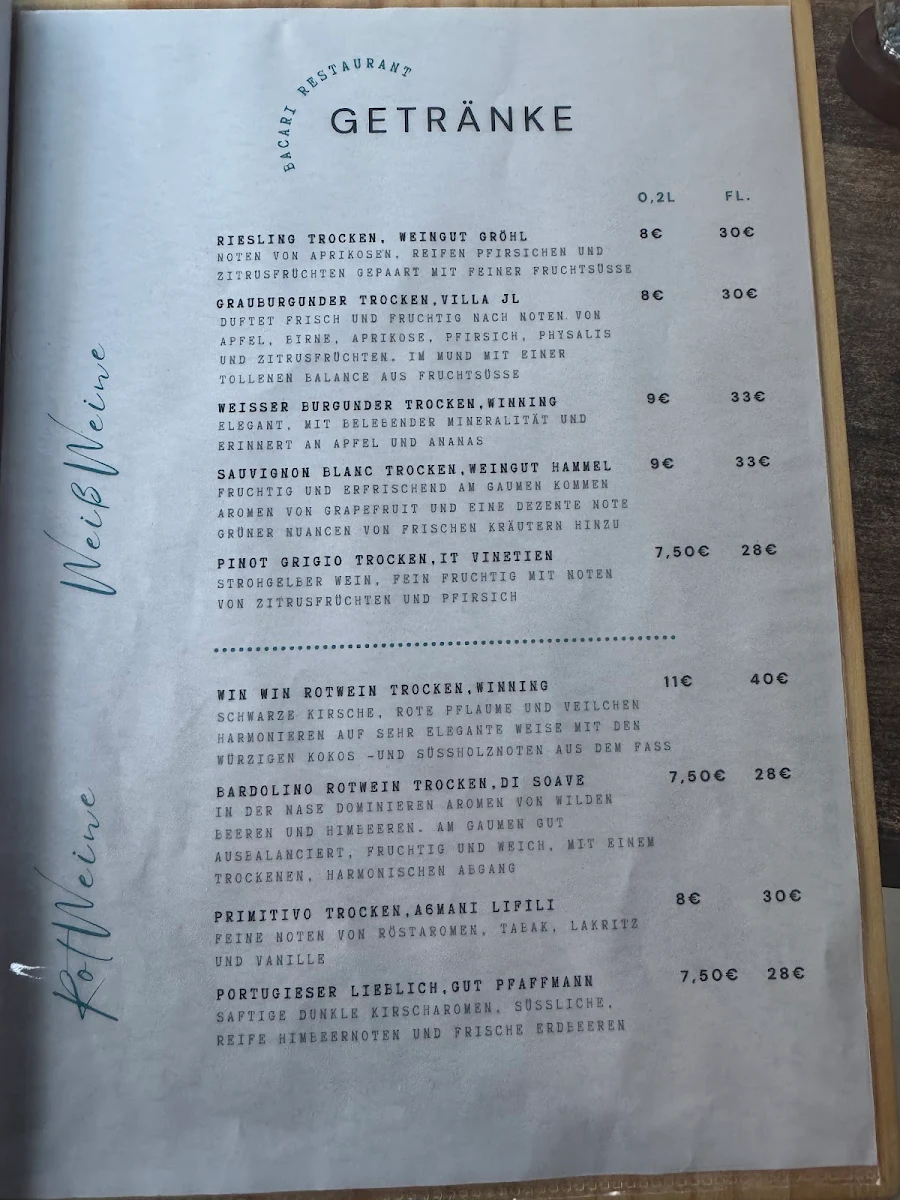 BACARI RESTAURANT
GETRÄNKE
0,2L FL.
Weiß Weine
RIESLING TROCKEN, WEINGUT GRÖHL 8€ 30€
NOTEN VON APRIKOSEN, REIFEN PFIRSICHEN UND
ZITRUSFRÜCHTEN GEPAART MIT FEINER FRUCHTSÜSSE
GRAUBURGUNDER TROCKEN,VILLA JL 8€ 30€
DUFTET FRISCH UND FRUCHTIG NACH NOTEN VON
APFEL, BIRNE, APRIKOSE, PFIRSICH, PHYSALIS
UND ZITRUSFRÜCHTEN. IM MUND MIT EINER
TOLLENEN BALANCE AUS FRUCHTSÜSSE
WEISSER BURGUNDER TROCKEN,WINNING 9€ 33€
ELEGANT, MIT BELEBENDER MINERALITÄT UND
ERINNERT AN APFEL UND ANANAS
SAUVIGNON BLANC TROCKEN,WEINGUT HAMMEL 9€ 33€
FRUCHTIG UND ERFRISCHEND AM GAUMEN KOMMEN
AROMEN VON GRAPEFRUIT UND EINE DEZENTE NOTE
GRÜNER NUANCEN VON FRISCHEN KRÄUTERN HINZU
PINOT GRIGIO TROCKEN,IT VINETIEN 7,50€ 28€
STROHGELBER WEIN, FEIN FRUCHTIG MIT NOTEN
VON ZITRUSFRÜCHTEN UND PFIRSICH
Rot Weine
WIN WIN ROTWEIN TROCKEN,WINNING 11€ 40€
SCHWARZE KIRSCHE, ROTE PFLAUME UND VEILCHEN
HARMONIEREN AUF SEHR ELEGANTE WEISE MIT DEN
WÜRZIGEN KOKOS -UND SÜSSHOLZNOTEN AUS DEM FASS
BARDOLINO ROTWEIN TROCKEN,DI SOAVE 7,50€ 28€
IN DER NASE DOMINIEREN AROMEN VON WILDEN
BEEREN UND HIMBEEREN. AM GAUMEN GUT
AUSBALANCIERT, FRUCHTIG UND WEICH, MIT EINEM
TROCKENEN, HARMONISCHEN ABGANG
PRIMITIVO TROCKEN,A6MANI LIFILI 8€ 30€
FEINE NOTEN VON RÖSTAROMEN, TABAK, LAKRITZ
UND VANILLE
PORTUGIESER LIEBLICH,GUT PFAFFMANN 7,50€ 28€
SAFTIGE DUNKLE KIRSCHAROMEN, SÜSSLICHE,
REIFE HIMBEERNOTEN UND FRISCHE ERDBEEREN